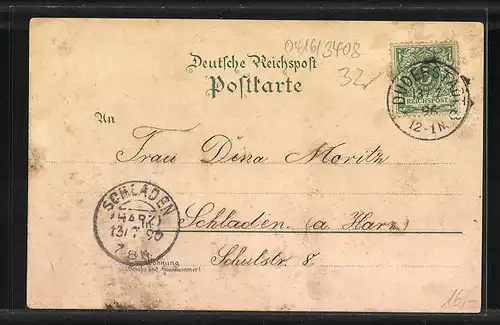 0416/3408
32
Deutsche Reichspost
Postkarte
DUDERSTADT
13/7
95
12-1N.
REICHSPOST
An
Frau Dina Moritz
SCHLADEN
(HARZ)
13/7 95
7-8N.
Schladen (a Harz)
Schulstr. 8
Wohnung
(Straße und Hausnummer)
16,-